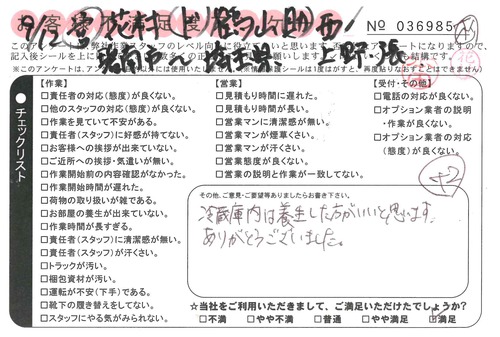 No 036985
このアンケートは、
【作業】
□責任者の対応(態度)が良くない。
□他のスタッフの対応(態度)が良くない。
□作業を見ていて不安がある。
□責任者(スタッフ)に好感が持てない。
□お客様への挨拶が出来ていない。
□ご近所への挨拶・気遣いが無い。
□作業開始前の内容確認がなかった。
□作業開始時間が遅れた。
□荷物の取り扱いが雑である。
□お部屋の養生が出来ていない。
□作業時間が長すぎる。
□責任者(スタッフ)に清潔感が無い。
□責任者(スタッフ)が汗くさい。
□トラックが汚い。
□梱包資材が汚い。
□運転が不安(下手)である。
□靴下の履き替えをしてない。
□スタッフにやる気がみられない。
【営業】
□見積もり時間に遅れた。
□見積もり時間が長い。
□営業マンに清潔感が無い。
□営業マンが煙草くさい。
□営業マンが汗くさい。
□営業態度が良くない。
□営業の説明と作業が一致してない。
【受付・その他】
□電話の対応が良くない。
□オプション業者の説明
・作業が良くない。
□オプション業者の対応
(態度)が良くない。
チェックリスト
その他、ご意見・ご要望等ありましたらお書き下さい。
冷蔵庫内は養生した方がいいと思います。
ありがとうございました。
☆当社をご利用いただきまして、ご満足いただけたでしょうか?
□不満 □やや不満 □普通 □やや満足 □満足